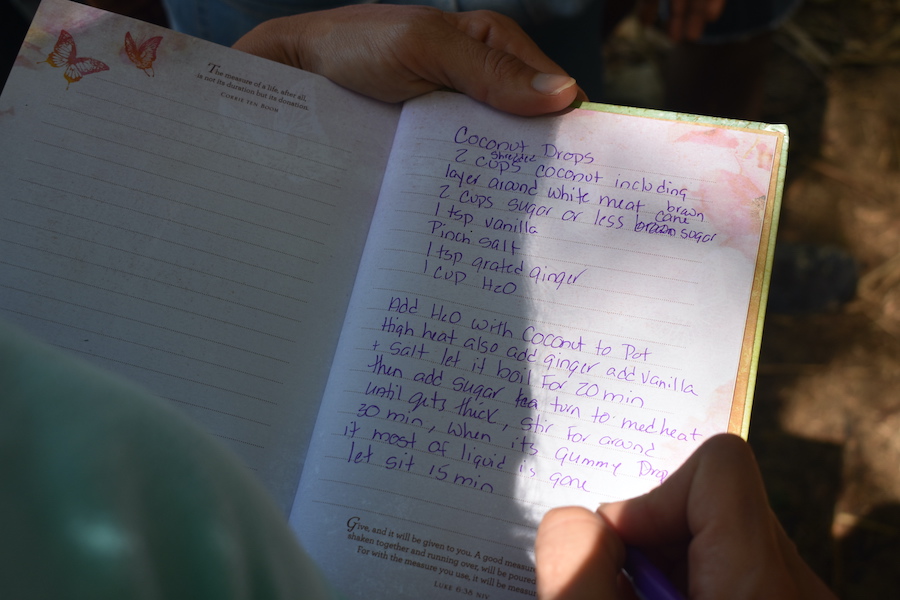 The measure of a life, after all,
is not its duration but its donation.
CORRIE TEN BOOM
Coconut Drops
2 cups shredded coconut including
layer around white meat
2 cups sugar or less brown cane sugar
1 tsp vanilla
Pinch salt
1 tsp grated ginger
1 cup H2O
Add H2O with Coconut to Pot
High heat also add ginger add vanilla
+ salt let it boil For 20 min
then add sugar turn to med heat
until gets thick, stir For around
30 min, when its gummy Drop
it most of liquid is gone
let sit 15 min
Give, and it will be given to you. A good measure
shaken together and running over, will be poured
For with the measure you use, it will be measur
LUKE 6:38 NIV